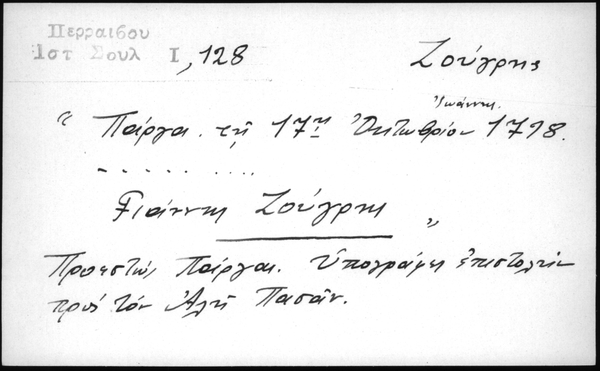 Περραιβου
Ιστ Σουλ Ι, 128
Ζούγρης
Ἰωάννης.
" Πάργα. τῇ 17ῃ Ὀκτωβρίου 1798.
- . . . . . . . .
Γιάννης Ζούγρης "
Προεστώς Πάργας. Ὑπογράφει ἐπιστολήν
πρός τόν Ἀλῆ Πασᾶν.